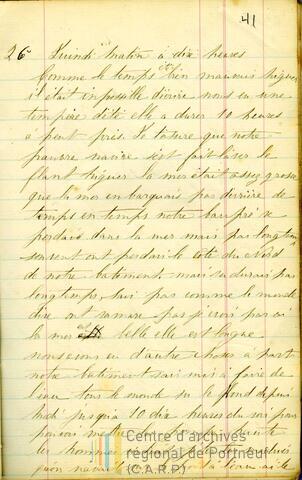 41
26e Luindi matin à dix heures
Comme le temps était bien mauvais
il était impossible décrire nous eu une
tempêre d'été elle a durer 10 heures
à peut près. Je tasure que notre
pauvre navire s'est fait laser le
flant la mer était assez grosse
que la mer en barquais pas derrière de
temps en temps notre baupré se
perdait dans la mer mais pas longtems
souvent ont perdait le côté du Nord
de notre batiment mais sa durais pas
longtemps, sais pas comme le monde
dire ont samare pas je crois pas car
la mer telle elle est longue
nous eu d'autre choses à part
notre batiment sais mis a faire de
l'eau tous le monde sur le pond depuis
midi jusqu'à 10 dix heures du soir pour
pouvoir
les hommes
qu'on navait l'eau
Centre d'archives
régional de Portneuf
(C.A.R.P.)